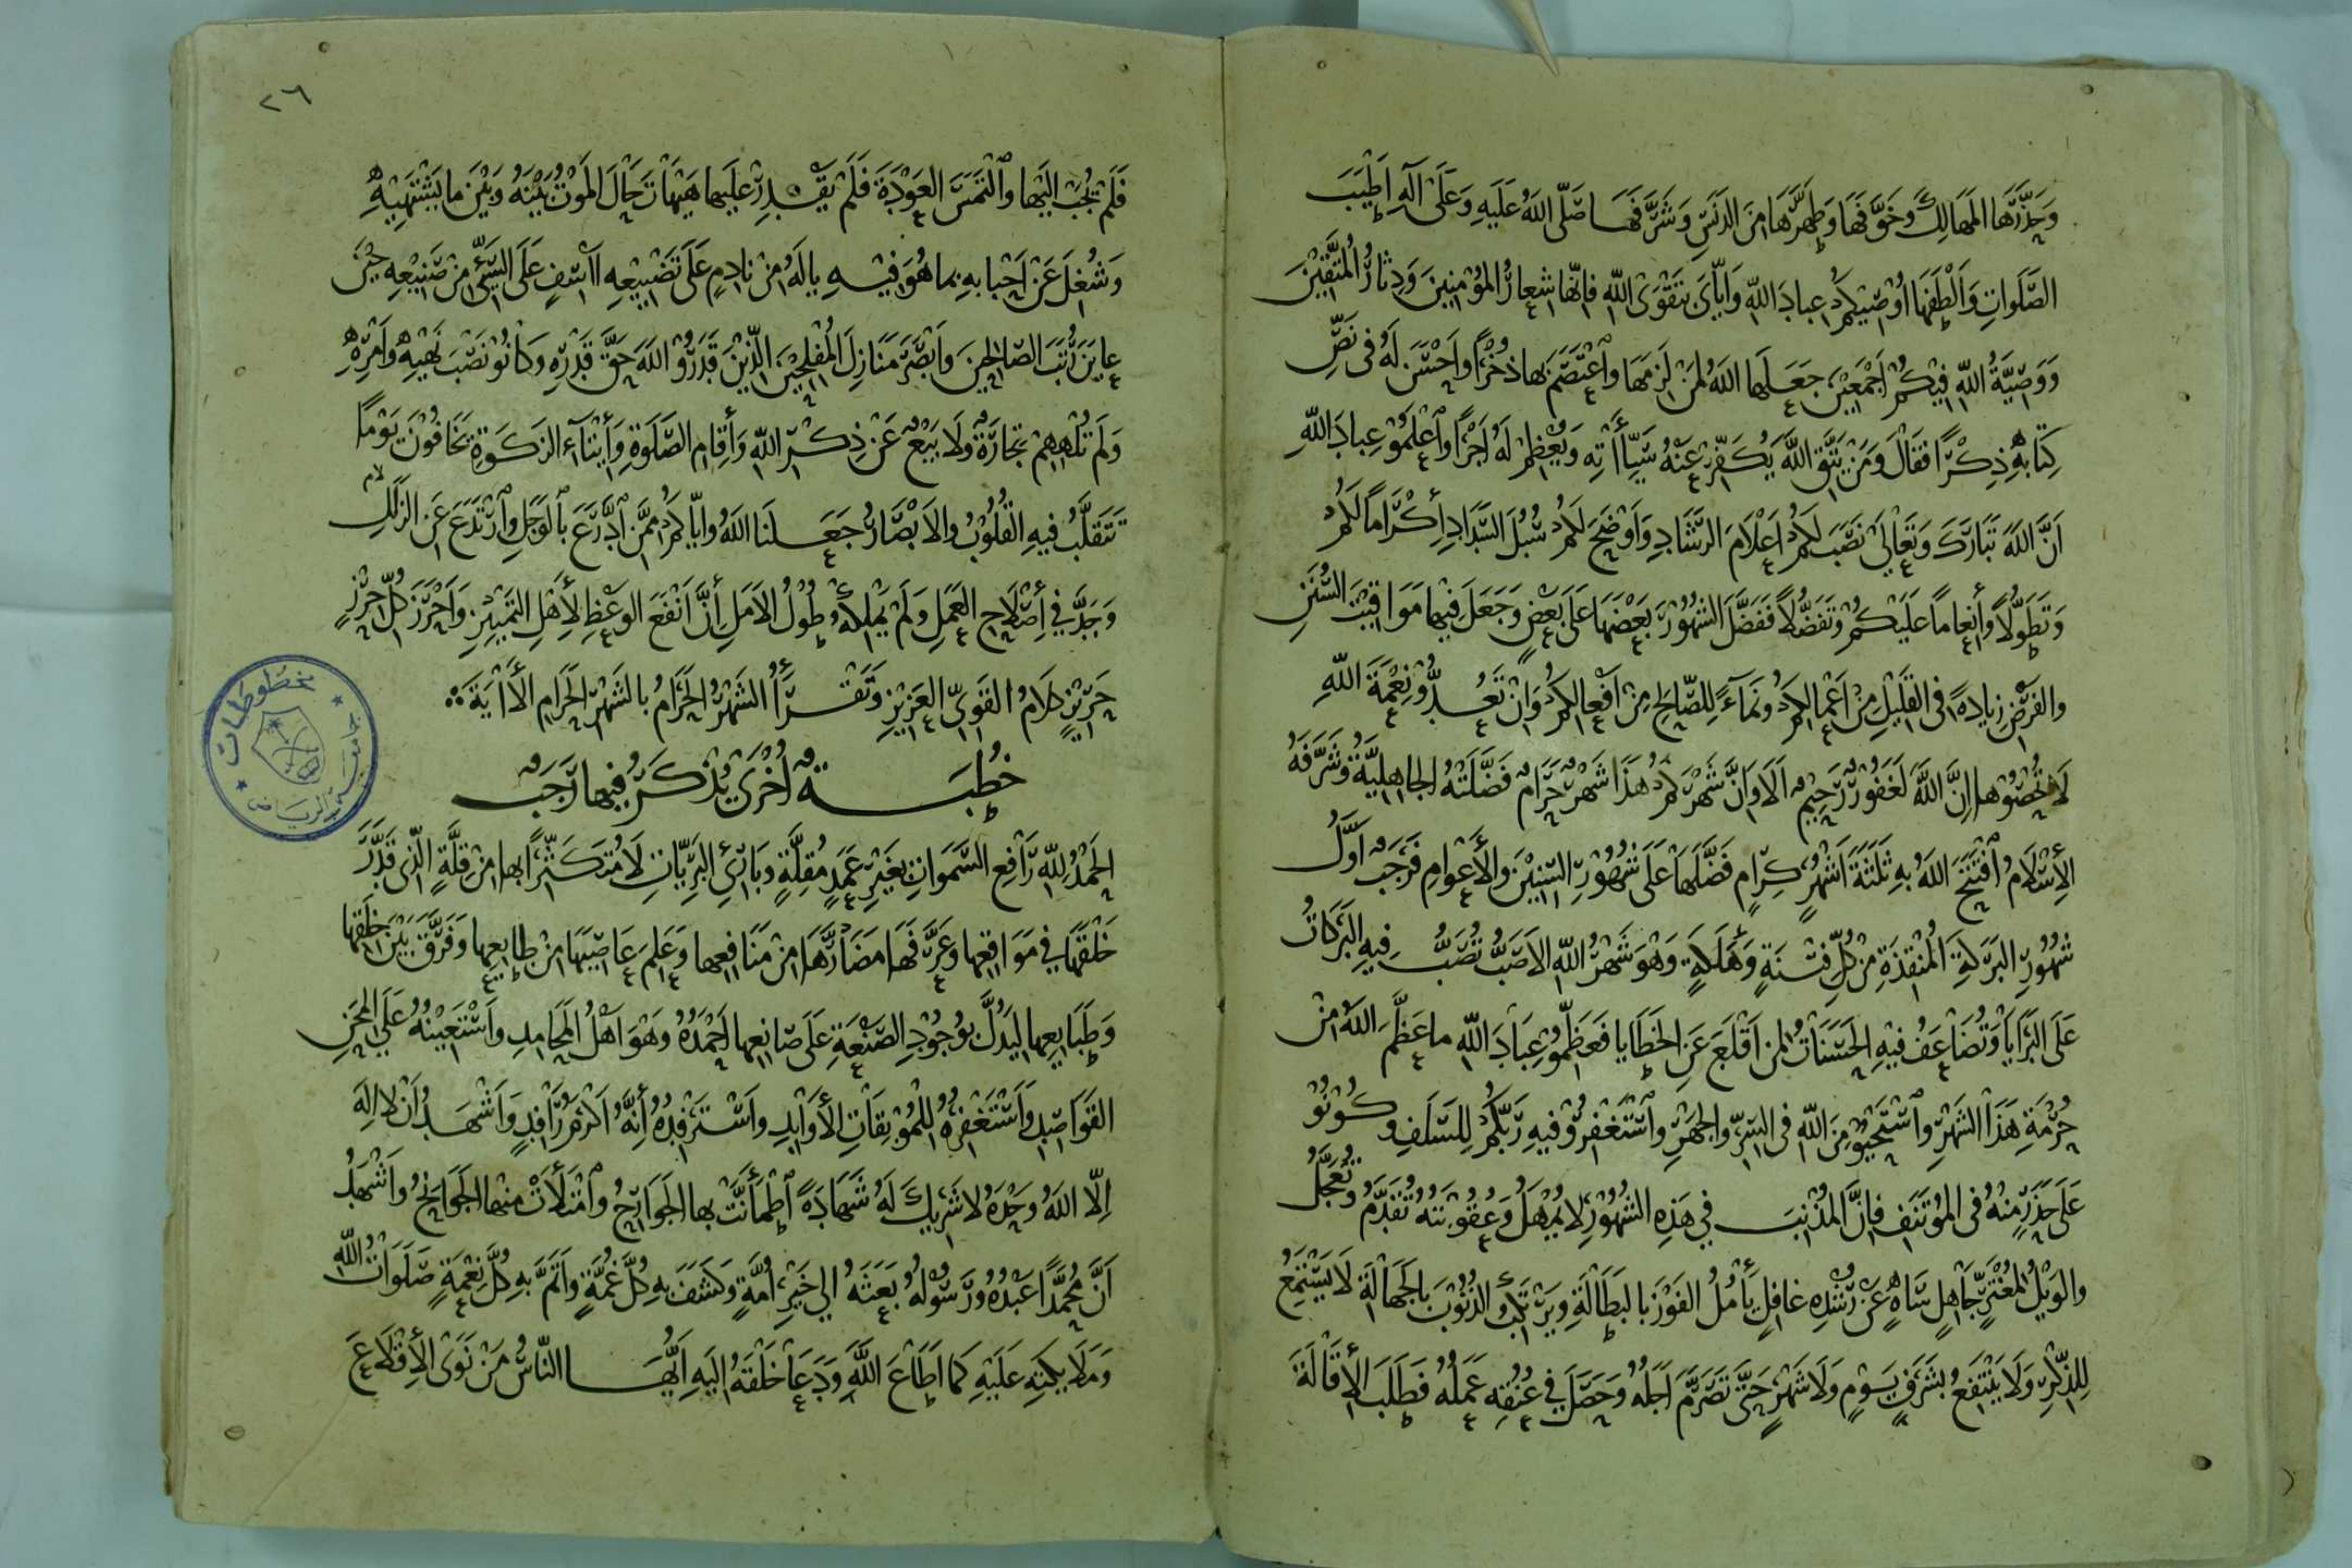 وَحَذَّرَهَا المَهَالِكَ وَخَوَّفَهَا وَطَهَّرَهَا مِنَ الدَّنَسِ وَشَرَّفَهَا صَلّى اللهُ عَلَيهِ وَعَلَى آلِهِ اَطْيَبَ
الصَّلَوَاتِ وَاَلْطَفَهَا اُوْصِيْكُمْ عِبادَ اللهِ وَاِيَّايَ بِتَقْوَى اللهِ فَاِنَّها شِعارُ المُؤْمِنِينَ وَدِثارُ المُتَّقِيْنَ
وَوَصِيَّةُ اللهِ فِيْكُمْ اَجْمَعِيْنَ جَعَلَها اللهُ لِمَنْ لَزِمَهَا وَاعْتَصَمَ بِهَا ذُخْرًا وَاَحْسَنَ لَهُ فِى نَصِّ
كِتَابِهِ ذِكْرًا فَقَالَ وَمَنْ يَتَّقِ اللهَ يُكَفِّرْ عَنْهُ سَيِّآتِهِ وَيُعْظِمْ لَهُ اَجْرًا وَاعْلَمُوْ عِبادَ اللهِ
اَنَّ اللهَ تَبَارَكَ وَتَعَالَى نَصَبَ لَكُمْ اَعْلَامَ الرَّشَادِ وَاَوْضَحَ لَكُمْ سُبُلَ السَّدَادِ اِكْرَامًا لَكُمْ
وَتَطَوُّلًا وَاِنْعَامًا عَلَيْكُمْ وَتَفَضُّلًا فَفَضَّلَ الشُّهُوْرَ بَعْضَهَا عَلَى بَعْضٍ وَجَعَلَ فِيْهَا مَوَاقِيْتَ السُّنَنِ
وَالفَرْضِ زِيادَةً فِى القَلِيْلِ مِنْ اَعْمَالِكُمْ وَنَمَاءً لِلصَّالِحِ مِنْ اَفْعَالِكُمْ وَاِنْ تَعُدُّوْ نِعْمَةَ اللهِ
لَا تُحْصُوْهَا اِنَّ اللهَ لَغَفُوْرٌ رَحِيْمٌ اَلَا وَاِنَّ شَهْرَكُمْ هَذَا شَهْرٌ حَرَامٌ فَضَّلَتْهُ الجَاهِلِيَّةُ وَشَرَّفَهُ
الاِسْلَامُ افْتَتَحَ اللهُ بِهِ ثَلَثَةَ اَشْهُرٍ كِرَامٍ فَضَّلَهَا عَلَى شُهُوْرِ السِّنِيْنَ وَالأَعْوَامِ فَرَجَبٌ اَوَّلُ
شُهُوْرِ البَرَكَةِ المُنْقِذَةِ مِنْ كُلِّ فِتْنَةٍ وَهَلَكَةٍ وَهُوَ شَهْرُ اللهِ الاَصَبُّ تُصَبُّ فِيهِ البَرَكَاتُ
عَلَى البَرَايَا وَتُضَاعَفُ فِيْهِ الحَسَنَاتُ لِمَنْ اَقْلَعَ عَنِ الخَطَايَا فَعَظِّمُوْ عِبَادَ اللهِ مَا عَظَّمَ اللهُ مِنْ
حُرْمَةِ هَذَا الشَّهْرِ وَاسْتَحْيُوْ مِنَ اللهِ فِى السِّرِّ وَالجَهْرِ وَاسْتَغْفِرُوْ فِيهِ رَبَّكُمْ لِلسَّلَفِ وَكُوْنُوْ
عَلَى حَذَرٍ مِنْهُ فِى المُوْتَنَفِ فَاِنَّ المُذْنِبَ فِي هَذِهِ الشُّهُوْرِ لَا يُمْهَلُ وَعُقُوْبَتَهُ تُقَدَّمُ وَتُعَجَّلُ
وَالوَيْلُ لِمُغْتَرٍّ جَاهِلٍ سَاهٍ عَنْ رُشْدِهِ غَافِلٍ يَأْمُلُ الفَوْزَ بِالبَطَالَةِ وَيَرْتَكِبُ الذُّنُوْبَ بِالجَهَالَةِ لَا يَسْتَمِعُ
لِلذِّكْرِ وَلَا يَنْتَفِعُ بِشَرَفِ يَوْمٍ وَلَا شَهْرٍ حَتَّى تَصَرَّمَ اَجَلُهُ وَحَصَلَ فِي عُنُقِهِ عَمَلُهُ فَطَلَبَ الإِقَالَةَ
٢٦
فَلَمْ يُجَبْ اِلَيْهَا وَالْتَمَسَ العَوْدَةَ فَلَمْ يَقْدِرْ عَلَيْهَا هَيْهَاتَ حَالَ المَوْتُ بَيْنَهُ وَبَيْنَ مَا يَشْتَهِيْهِ
وَشُغِلَ عَنْ اَحْبَابِهِ بِمَا هُوَ فِيْهِ يَا لَهُ مِنْ نَادِمٍ عَلَى تَضْيِيْعِهِ آسِفٍ عَلَى السَّيِّئِ مِنْ صَنِيْعِهِ حِيْنَ
عَايَنَ رُتَبَ الصَّالِحِيْنَ وَاَبْصَرَ مَنَازِلَ المُفْلِحِيْنَ الَّذِيْنَ قَدَرُوْ اللهَ حَقَّ قَدْرِهِ وَكَانُوْ نُصْبَ نَهْيِهِ وَاَمْرِهِ
وَلَمْ تُلْهِهِمْ تِجَارَةٌ وَلَا بَيْعٌ عَنْ ذِكْرِ اللهِ وَاِقَامِ الصَّلَوةِ وَاِيْتَآءِ الزَّكَوةِ يَخَافُوْنَ يَوْمًا
تَتَقَلَّبُ فِيهِ القُلُوْبُ وَالاَبْصَارُ جَعَلَنَا اللهُ وَاِيَّاكُمْ مِمَّنِ ادَّرَعَ بِالوَجَلِ وَارْتَدَعَ عَنِ الزَّلَلِ
وَجَدَّ فِي اِصْلَاحِ العَمَلِ وَلَمْ يُمْلِهْ طُوْلُ الاَمَلِ اِنَّ اَنْفَعَ الوَعْظِ لِأَهْلِ التَّمْيِيْزِ وَاَحْرَزَ كُلِّ حِرْزٍ
حَرِيْزٍ كَلَامُ القَوِيِّ العَزِيْزِ وَتَقْرَأُ الشَّهْرُ الحَرَامُ بِالشَّهْرِ الحَرَامِ الأٰيَةَ
خُطْبَةٌ اُخْرَى يُذْكَرُ فِيهَا رَجَبٌ
الحَمْدُ لِلّهِ رَافِعِ السَّمَوَاتِ بِغَيْرِ عَمَدٍ مُقِلَّةٍ وَبَارِئِ البَرِيَّاتِ لَا مُتَكَثِّرًا بِهَا مِنْ قِلَّةٍ الَّذِى قَدَّرَ
خَلْقَهَا فِي مَوَاقِعِهَا وَعَرَّفَهَا مَضَارَّهَا مِنْ مَنَافِعِهَا وَعَلِمَ عَاصِيَهَا مِنْ طَايِعِهَا وَفَرَّقَ بَيْنَ خَلْقِهَا
وَطَبَايِعِهَا لِيَدُلَّ بِوُجُوْدِ الصَّنْعَةِ عَلَى صَانِعِهَا اَحْمَدُهُ وَهْوَ اَهْلُ المَحَامِدِ وَاَسْتَعِيْنُهُ عَلَى المِحَنِ
القَوَاصِدِ وَاَسْتَغْفِرُهُ لِلْمُوْبِقَاتِ الأَوَابِدِ وَاَسْتَرْفِدُهُ اِنَّهُ اَكْرَمُ رَافِدٍ وَاَشْهَدُ اَنْ لَا اِلَهَ
اِلَّا اللهُ وَحْدَهُ لَا شَرِيكَ لَهُ شَهَادَةً اطْمَأَنَّتْ بِهَا الجَوَارِحُ وَامْتَلَأَتْ مِنْهَا الجَوَانِحُ وَاَشْهَدُ
اَنَّ مُحَمَّدًا عَبْدُهُ وَرَسُوْلُهُ بَعَثَهُ اِلَى خَيْرِ اُمَّةٍ وَكَشَفَ بِهِ كُلَّ غُمَّةٍ وَاَتَمَّ بِهِ كُلَّ نِعْمَةٍ صَلَوَاتُ اللهِ
وَمَلَايِكَتِهِ عَلَيْهِ كَمَا اَطَاعَ اللهَ وَدَعَا خَلْقَهُ اِلَيهِ اَيُّهَا النَّاسُ مَنْ نَوَى الأِقْلَاعَ
مخطوطات
جامعة الرياض